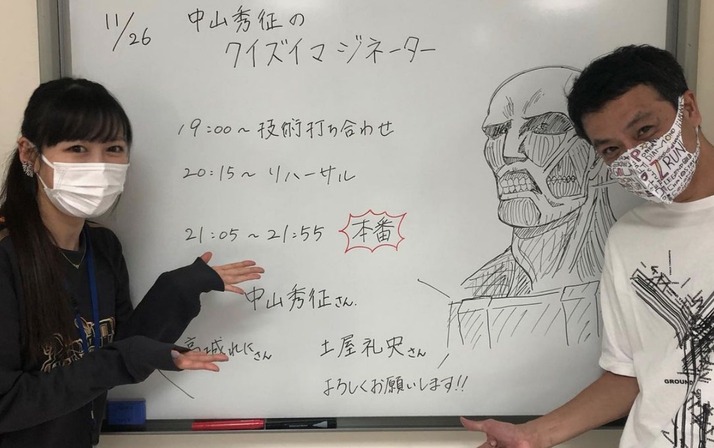 11/26
中山秀征の
クイズイマジネーター
19:00〜技術打ち合わせ
20:15〜リハーサル
21:05〜21:55 本番
中山秀征さん
高城れにさん 土屋礼央さん
よろしくお願いします!!
Z RUN
GROUND